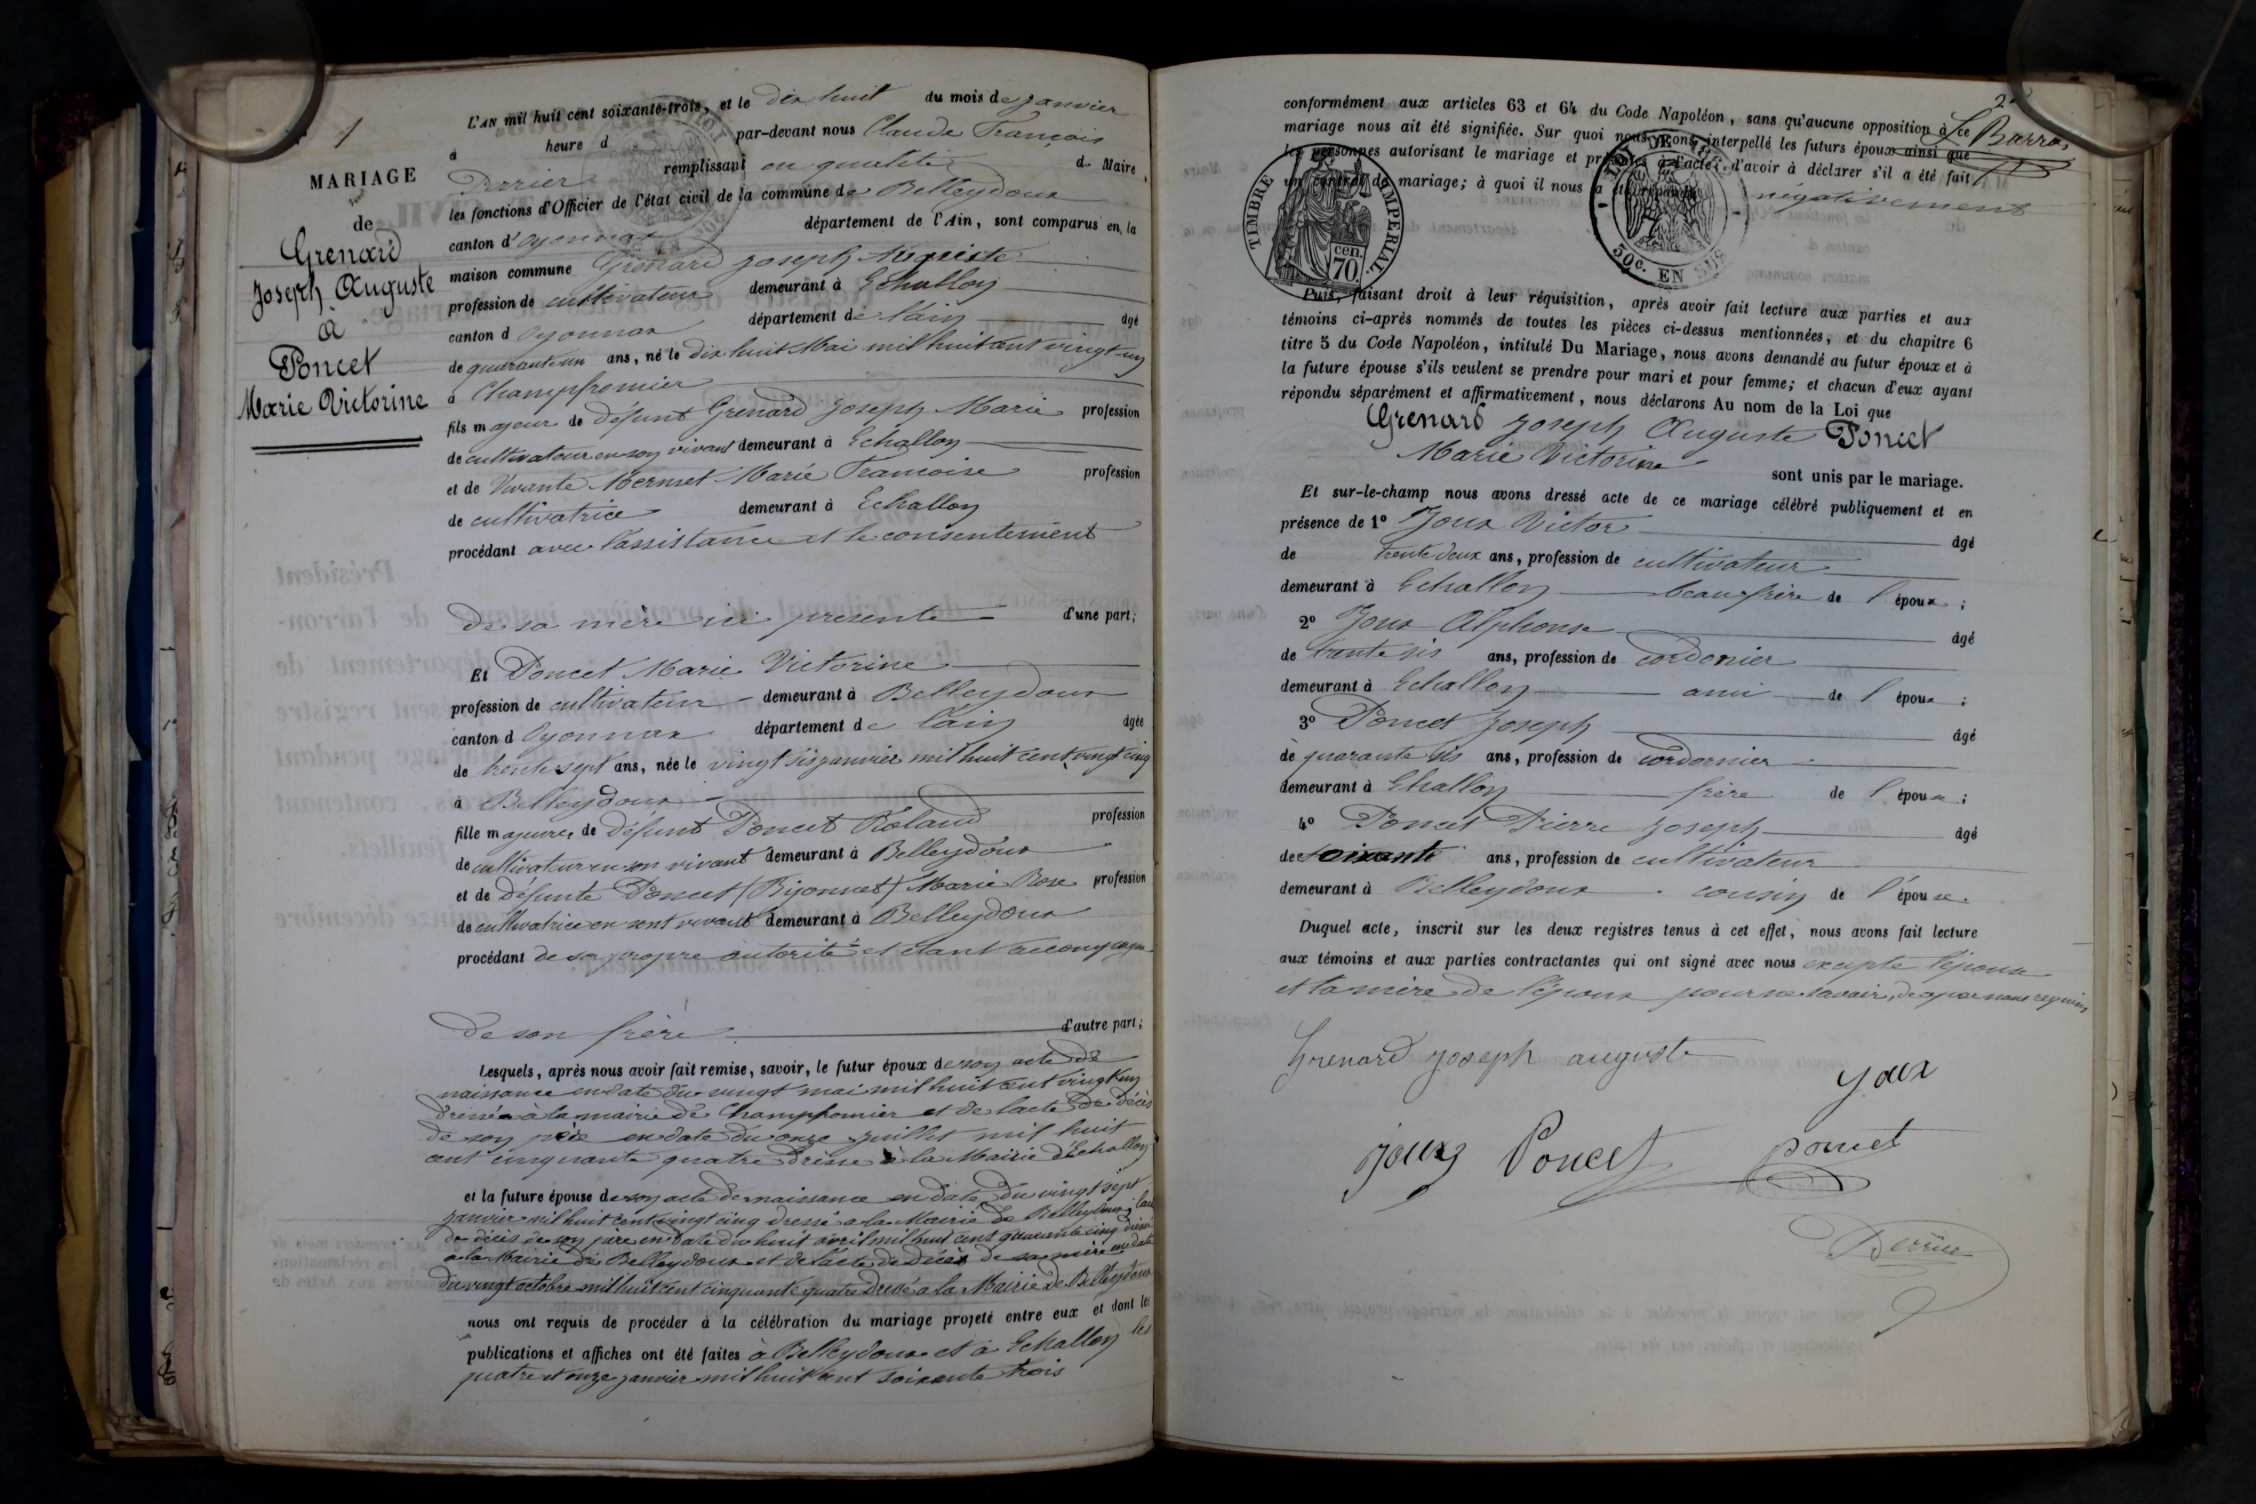 1
MARIAGE
de
Grenard
Joseph Auguste
à
Poncet
Marie Victorine
L'AN mil huit cent soixante-trois, et le dix huit du mois de janvier
à heure d par-devant nous Claude François
Perrier remplissant en qualité de Maire,
les fonctions d'Officier de l'état civil de la commune de Belleydoux
canton d'oyonnax département de l'Ain, sont comparus en la
maison commune Grenard joseph Auguste
profession de cultivateur demeurant à Echallon
canton d oyonnax département de l'ain âgé
de quarante un ans, né le dix huit Mai mil huit cent vingt un
à Champfromier
fils majeur de défunt Grenard joseph Marie profession
de cultivateur en son vivant demeurant à Echallon
et de Vivante Mermet Marie Francoise profession
de cultivatrice demeurant à Echallon
procédant avec l'assistance et le consentement
de sa mère ici presente d'une part;
Et Poncet Marie Victorine
profession de cultivateur demeurant à Belleydoux
canton d Oyonnax département de l'ain âgée
de trente sept ans, née le vingt six janvier mil huit cent vingt cinq
à Belleydoux
fille majeure de défunt Poncet Roland profession
de cultivateur en son vivant demeurant à Belleydoux
et de défunte Poncet (Bijonnet) Marie Rose profession
de cultivatrice en sont vivant demeurant à Belleydoux
procédant de sa propre autorité et étant accompagné
de son frère d'autre part;
Lesquels, après nous avoir fait remise, savoir, le futur époux de son acte de
naissance en date du vingt mai mil huit cent vingt un
dressé à la mairie de Champfromier et de l'acte de décès
de son père en date du onze juillet mil huit
cent cinquante quatre dressé à la Mairie d'Echallon
et la future épouse de son acte de naissance en date du vingt sept
janvier mil huit cent vingt cinq dressé a la Mairie de Belleydoux, l'acte
de décès de son père en date du huit avril mil huit cent quarante cinq dressé
a la Mairie de Belleydoux et de l'acte de décès de sa mère en date
du vingt octobre mil huit cent cinquante quatre dressé a la Mairie de Belleydoux
nous ont requis de procéder à la célébration du mariage projeté entre eux et dont les
publications et affiches ont été faites à Belleydoux et à Echallon les
quatre et onze janvier mil huit cent soixante trois
2
conformément aux articles 63 et 64 du Code Napoléon, sans qu'aucune opposition à ce
mariage nous ait été signifiée. Sur quoi nous avons interpellé les futurs époux ainsi que
les personnes autorisant le mariage et présentes à l'acte, d'avoir à déclarer s'il a été fait
un contrat de mariage; à quoi il nous a été répondu négativement
TIMBRE IMPERIAL
cen.
70
50c. EN SUS
Puis, faisant droit à leur réquisition, après avoir fait lecture aux parties et aux
témoins ci-après nommés de toutes les pièces ci-dessus mentionnées, et du chapitre 6
titre 5 du Code Napoléon, intitulé Du Mariage, nous avons demandé au futur époux et à
la future épouse s'ils veulent se prendre pour mari et pour femme; et chacun d'eux ayant
répondu séparément et affirmativement, nous déclarons Au nom de la Loi que
Grenard joseph Auguste Poncet
Marie Victorine sont unis par le mariage.
Et sur-le-champ nous avons dressé acte de ce mariage célébré publiquement et en
présence de 1º Joux Victor âgé
de trente deux ans, profession de cultivateur
demeurant à Echallon beau frère de l'époux;
2º Joux Alphonse âgé
de trente six ans, profession de cordonier
demeurant à Echallon ami de l'époux;
3º Poncet joseph âgé
de quarante six ans, profession de cordornier
demeurant à Echallon frère de l'épouse;
4º Poncet Pierre joseph âgé
de soixante ans, profession de cultivateur
demeurant à Belleydoux cousin de l'épouse.
Duquel acte, inscrit sur les deux registres tenus à cet effet, nous avons fait lecture
aux témoins et aux parties contractantes qui ont signé avec nous excepte l'épouse
et la mère de l'époux pour ne savoir, de a par nous requises
Grenard joseph auguste
Joux
joux Poncet poncet
Perrier